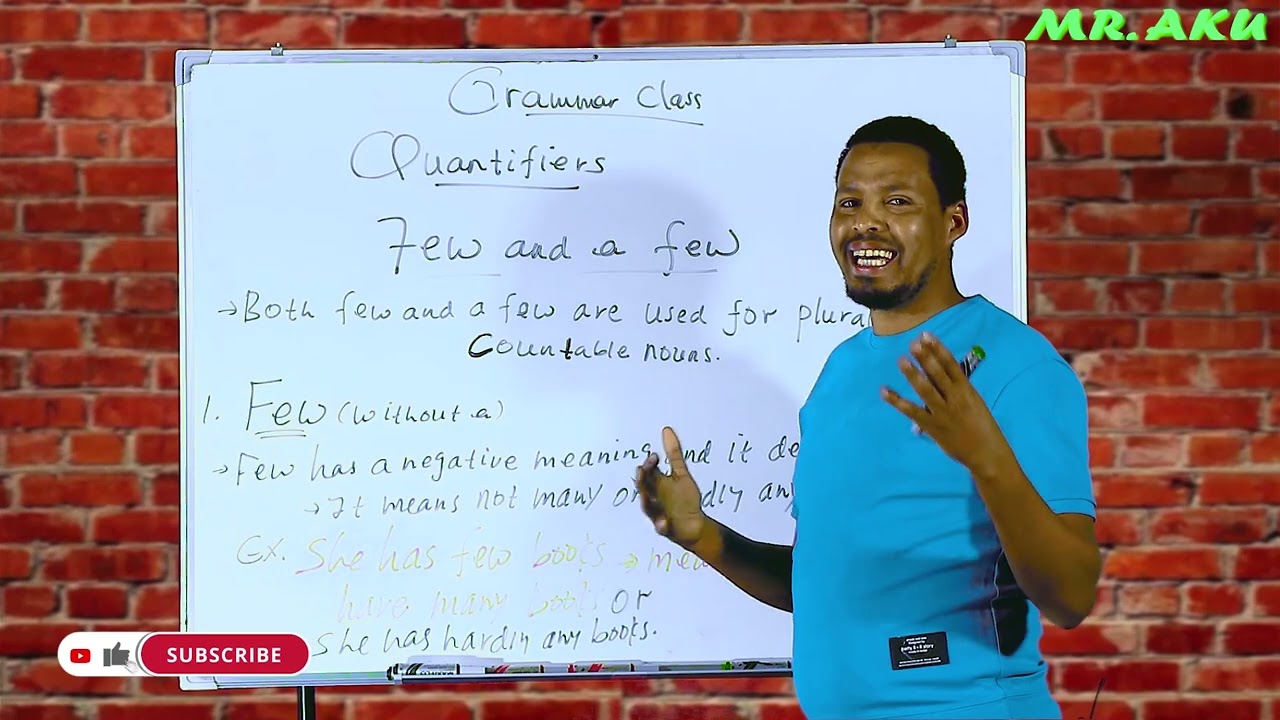 MR. AKU
Grammar Class
Quantifiers
Few and a few
→ Both few and a few are used for plura
Countable nouns.
1. Few (without a)
→ Few has a negative meaning and it de
→ It means not many or dly any
Ex. She has few books → mea
have many books or
She has hardly any books.
SUBSCRIBE